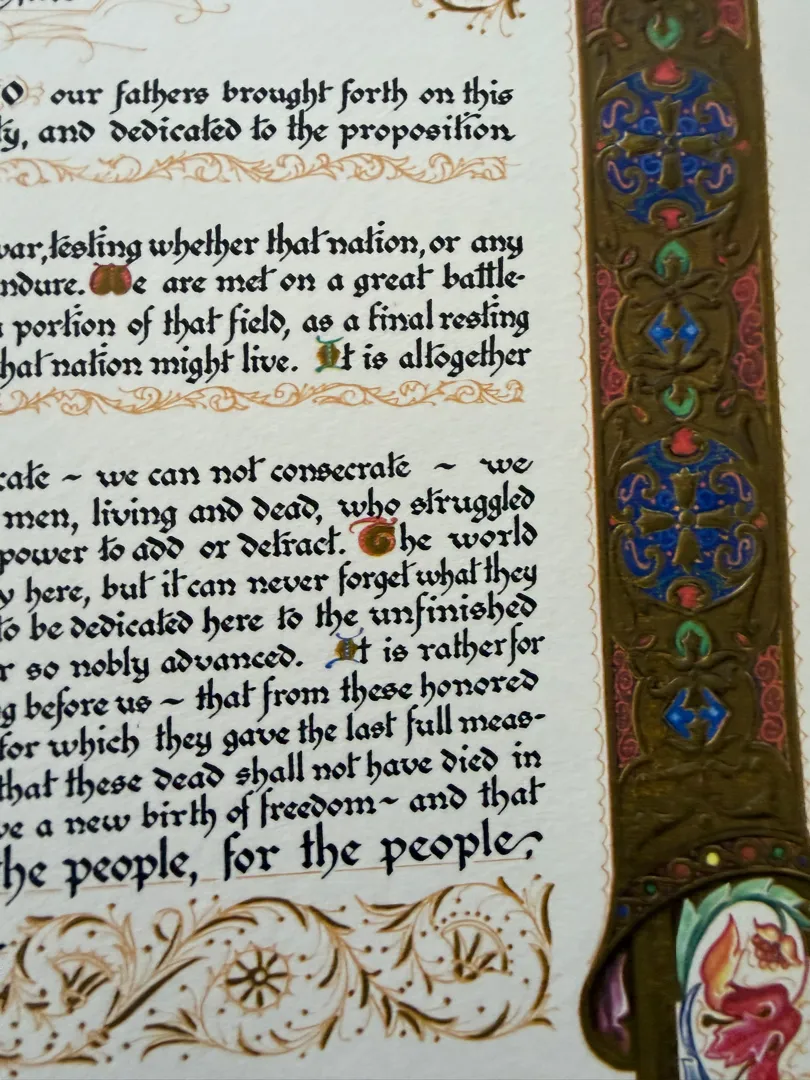 our fathers brought forth on this
ty, and dedicated to the proposition
war, testing whether that nation, or any
ndure. We are met on a great battle-
portion of that field, as a final resting
hat nation might live. It is altogether
cate ~ we can not consecrate ~ we
men, living and dead, who struggled
power to add or detract. The world
y here, but it can never forget what they
to be dedicated here to the unfinished
r so nobly advanced. It is rather for
g before us ~ that from these honored
for which they gave the last full meas-
that these dead shall not have died in
ve a new birth of freedom ~ and that
he people, for the people,